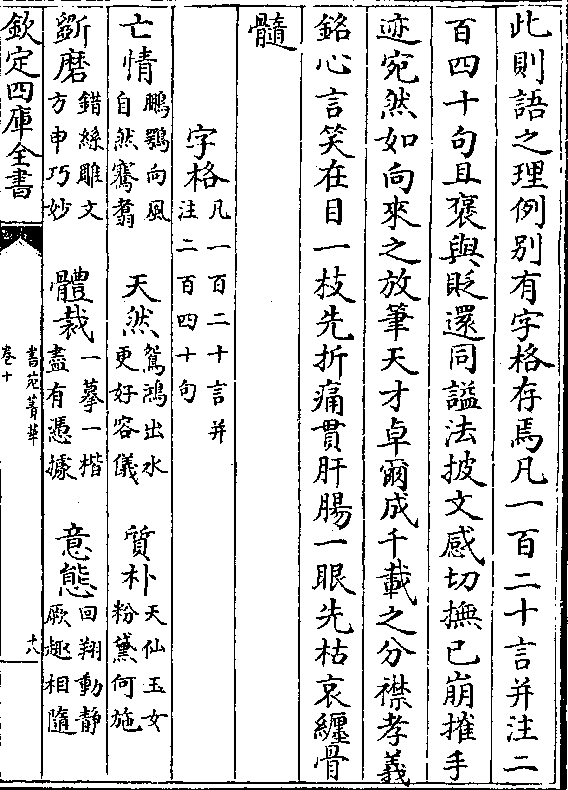 此則語之理例别有字格存焉凡一百二十言并注二
百四十句且褒與貶還同諡法披文感切撫已崩摧手
迹宛然如向來之放筆天才卓爾成千載之分襟孝義
銘心言笑在目一枝先折痛貫肝腸一眼先枯哀纏骨
髓
字格凡一百二十言并注二百四十句
亡情鵬鶚向風自然騫翥 天然鴛鴻出水更好容儀 質朴天仙玉女粉黛何施
斵磨錯綜雕文方申巧妙 體裁一摹一楷盡有憑據 意態回翔動静厥趣相隨
欽定四庫全書
書苑菁華
卷十
十八